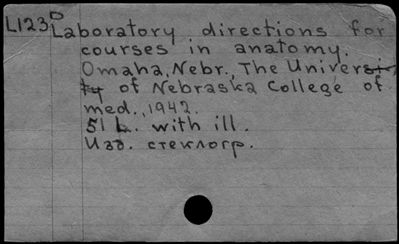 L123D Laboratory directions for
courses in anatomy.
Omaha, Nebr., The Universi
ty of Nebraska College of
med., 1942.
51 L. with ill.
Изд. стеклогр.